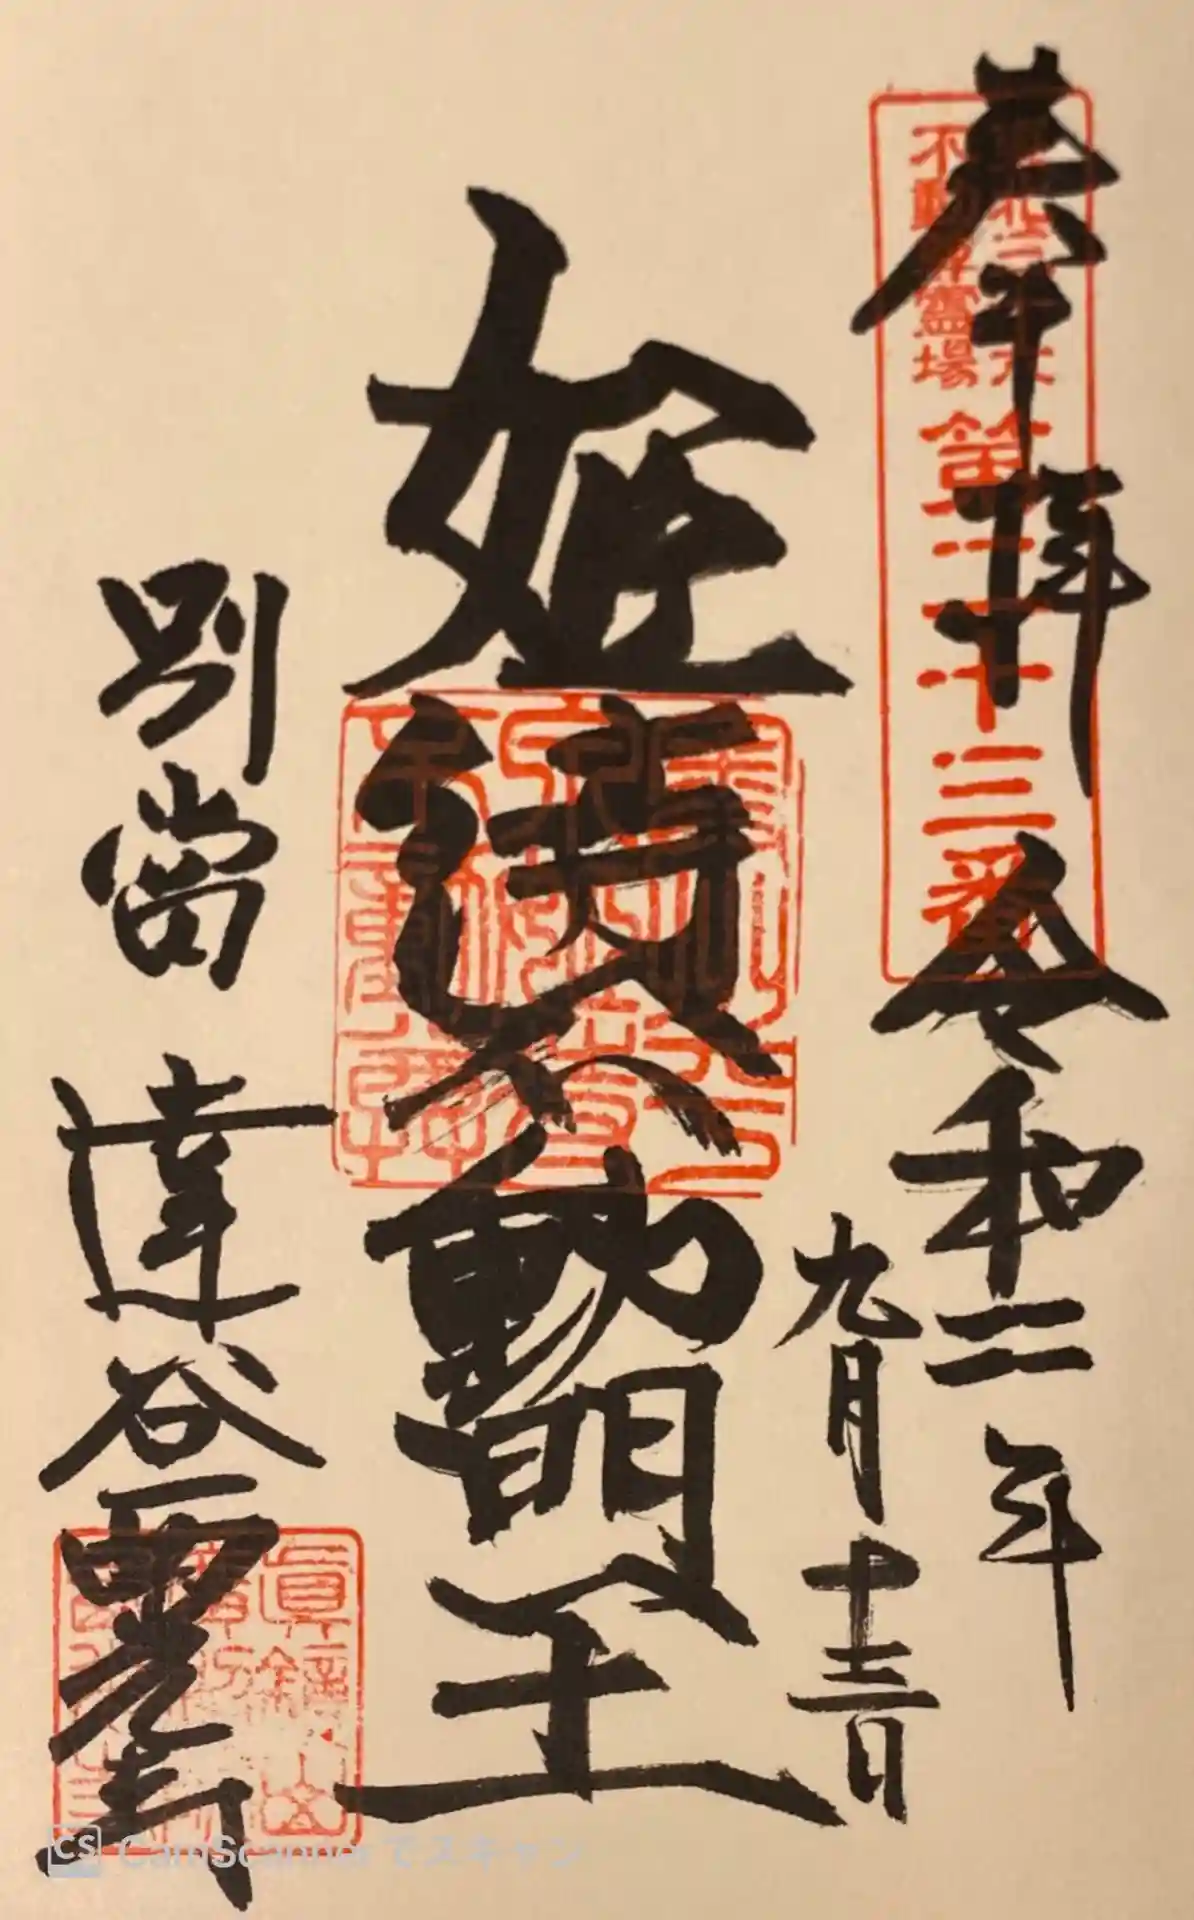 奉拝
東北三十六
不動尊霊場
第二十三番
令和二年
九月十三日
姫待不動明王
別當
達谷西光寺
CS CamScannerでスキャン